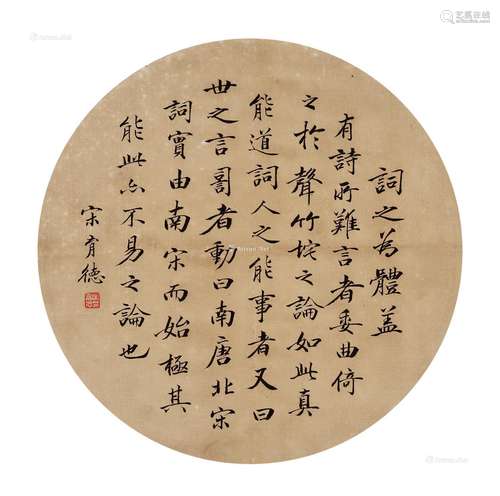 詞之為體蓋
有詩所難言者委曲倚
之於聲竹垞之論如此真
能道詞人之能事者又曰
世之言詞者動曰南唐北宋
詞實由南宋而始極其
能此亦不易之論也
宋育德